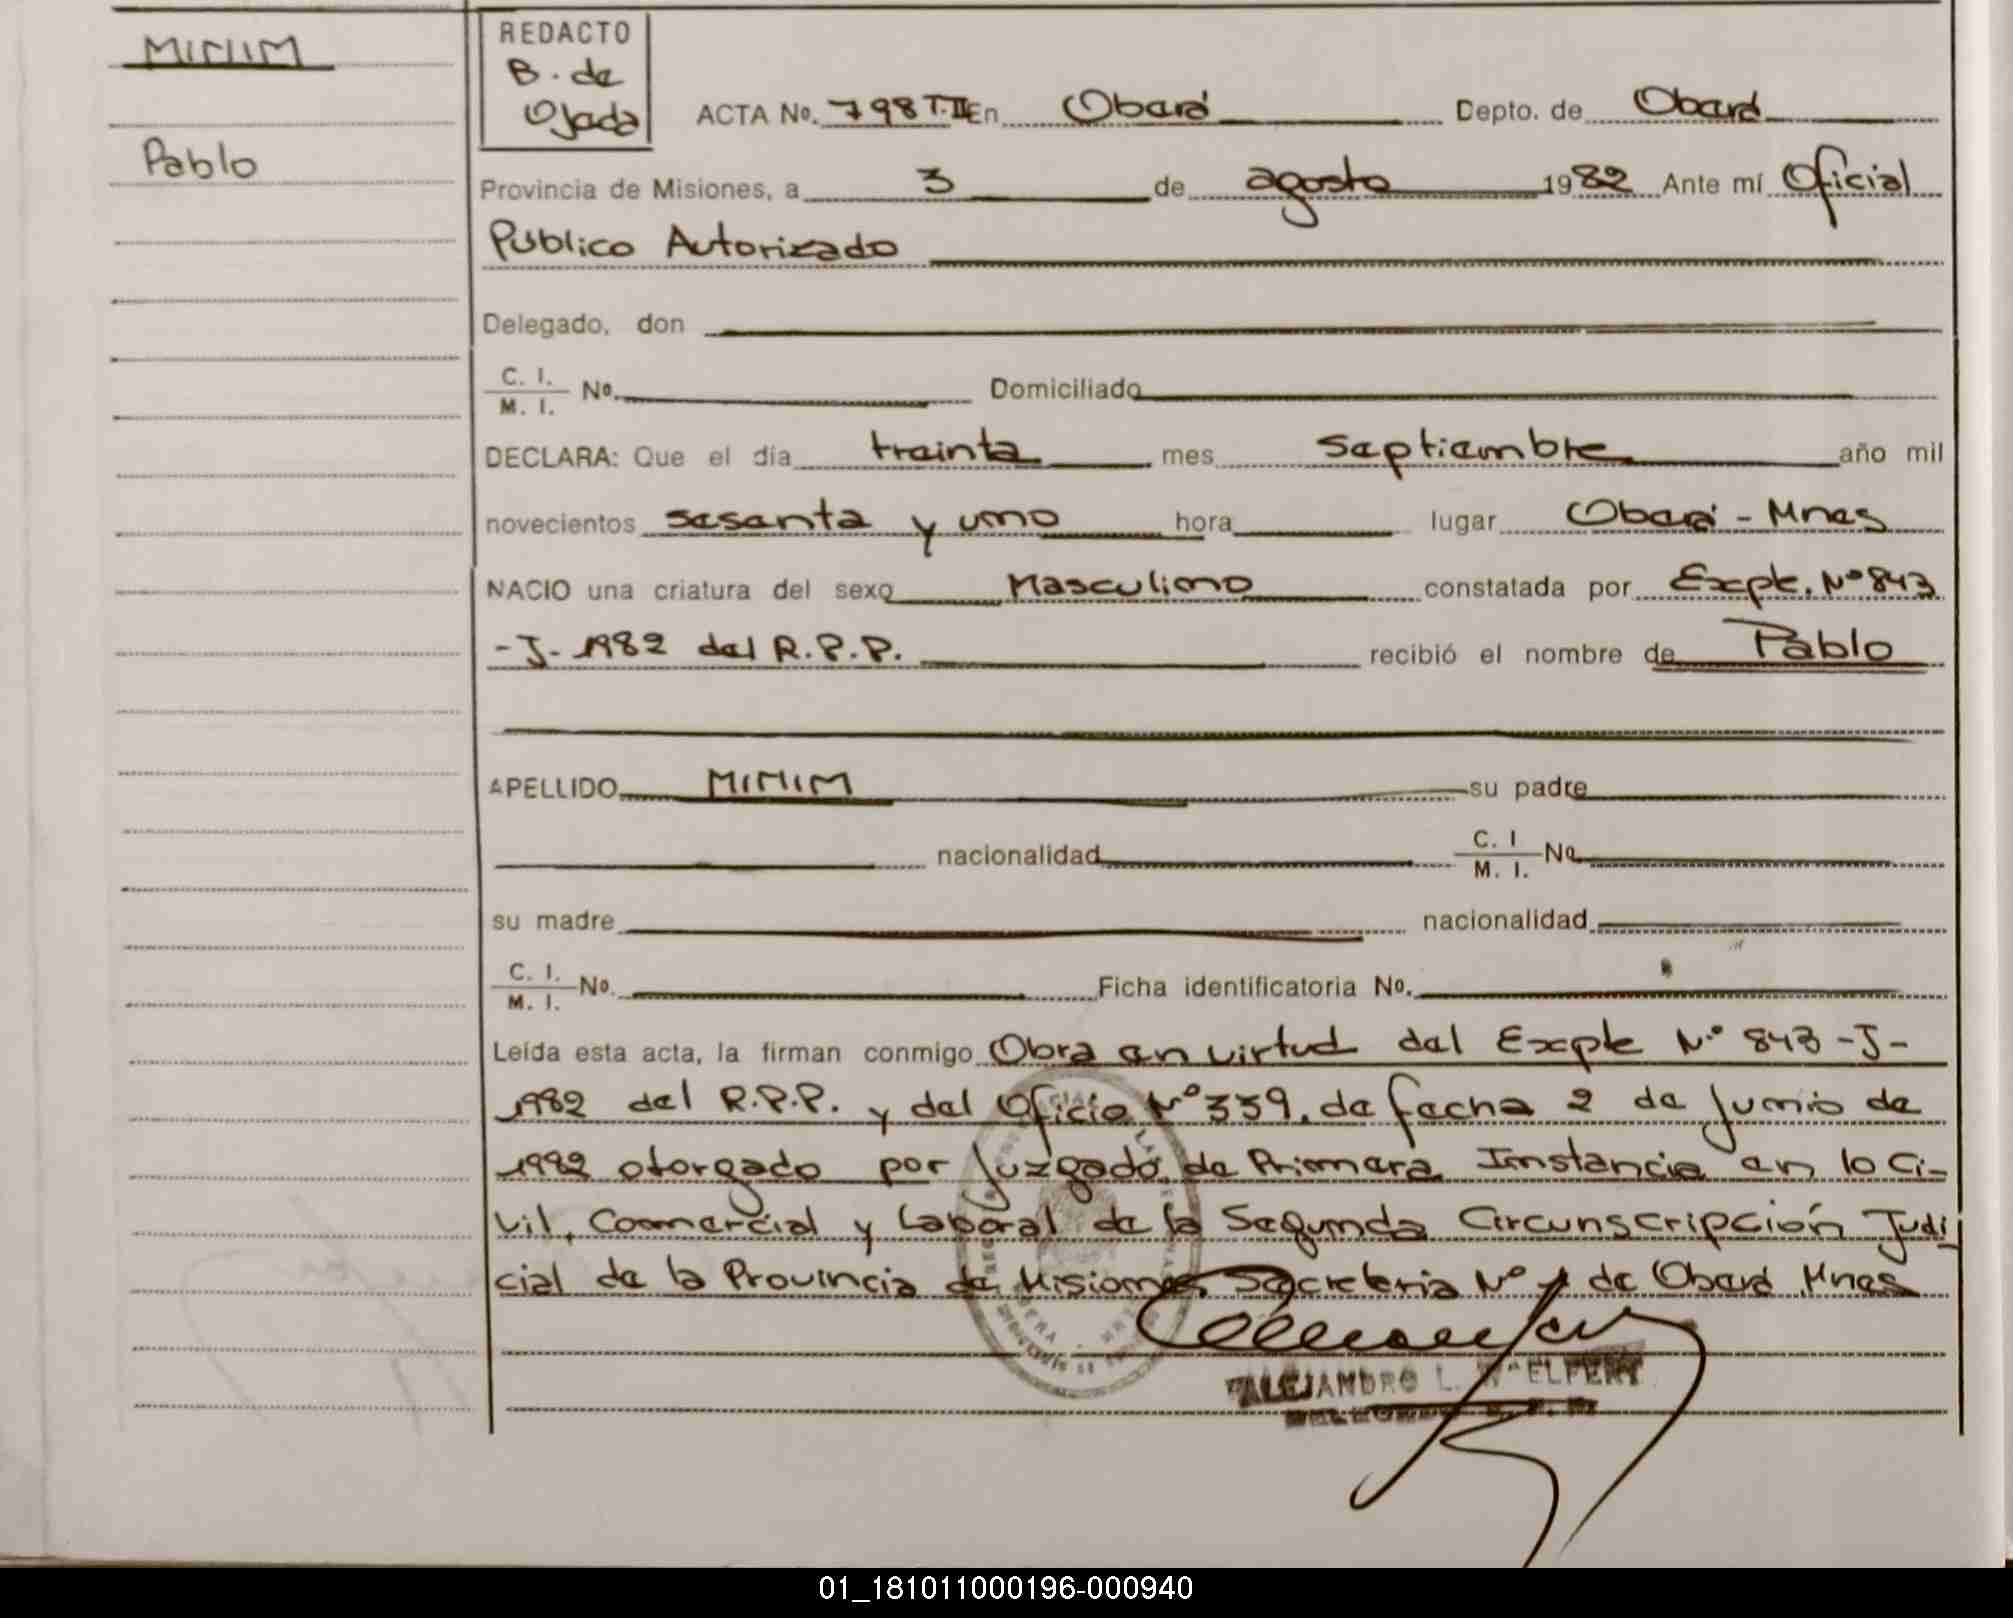 MIMIM
Pablo
REDACTO
B. de
Ojeda
ACTA No. 798 T.II En Oberá Depto. de Oberá
Provincia de Misiones, a 3 de agosto 1982 Ante mí Oficial
Público Autorizado
Delegado, don
C. I.
M. I. No. Domiciliado
DECLARA: Que el día treinta mes Septiembre año mil
novecientos sesenta y uno hora lugar Oberá - Mnes
NACIO una criatura del sexo Masculino constatada por Expte. Nº 843
-J- 1982 del R.P.P. recibió el nombre de Pablo
APELLIDO MIMIM su padre
nacionalidad C. I
M. I. No
su madre nacionalidad
C. I.
M. I. No. Ficha identificatoria No.
Leída esta acta, la firman conmigo Obra en virtud del Expte Nº 843 -J-
1982 del R.P.P. y del Oficio Nº 339, de fecha 2 de Junio de
1982 otorgado por Juzgado de Primera Instancia en lo Ci-
vil, Comercial y Laboral de la Segunda Circunscripción Judi
cial de la Provincia de Misiones Secretaria Nº 1 de Oberá Mnes
ALEJANDRO L.
01_181011000196-000940